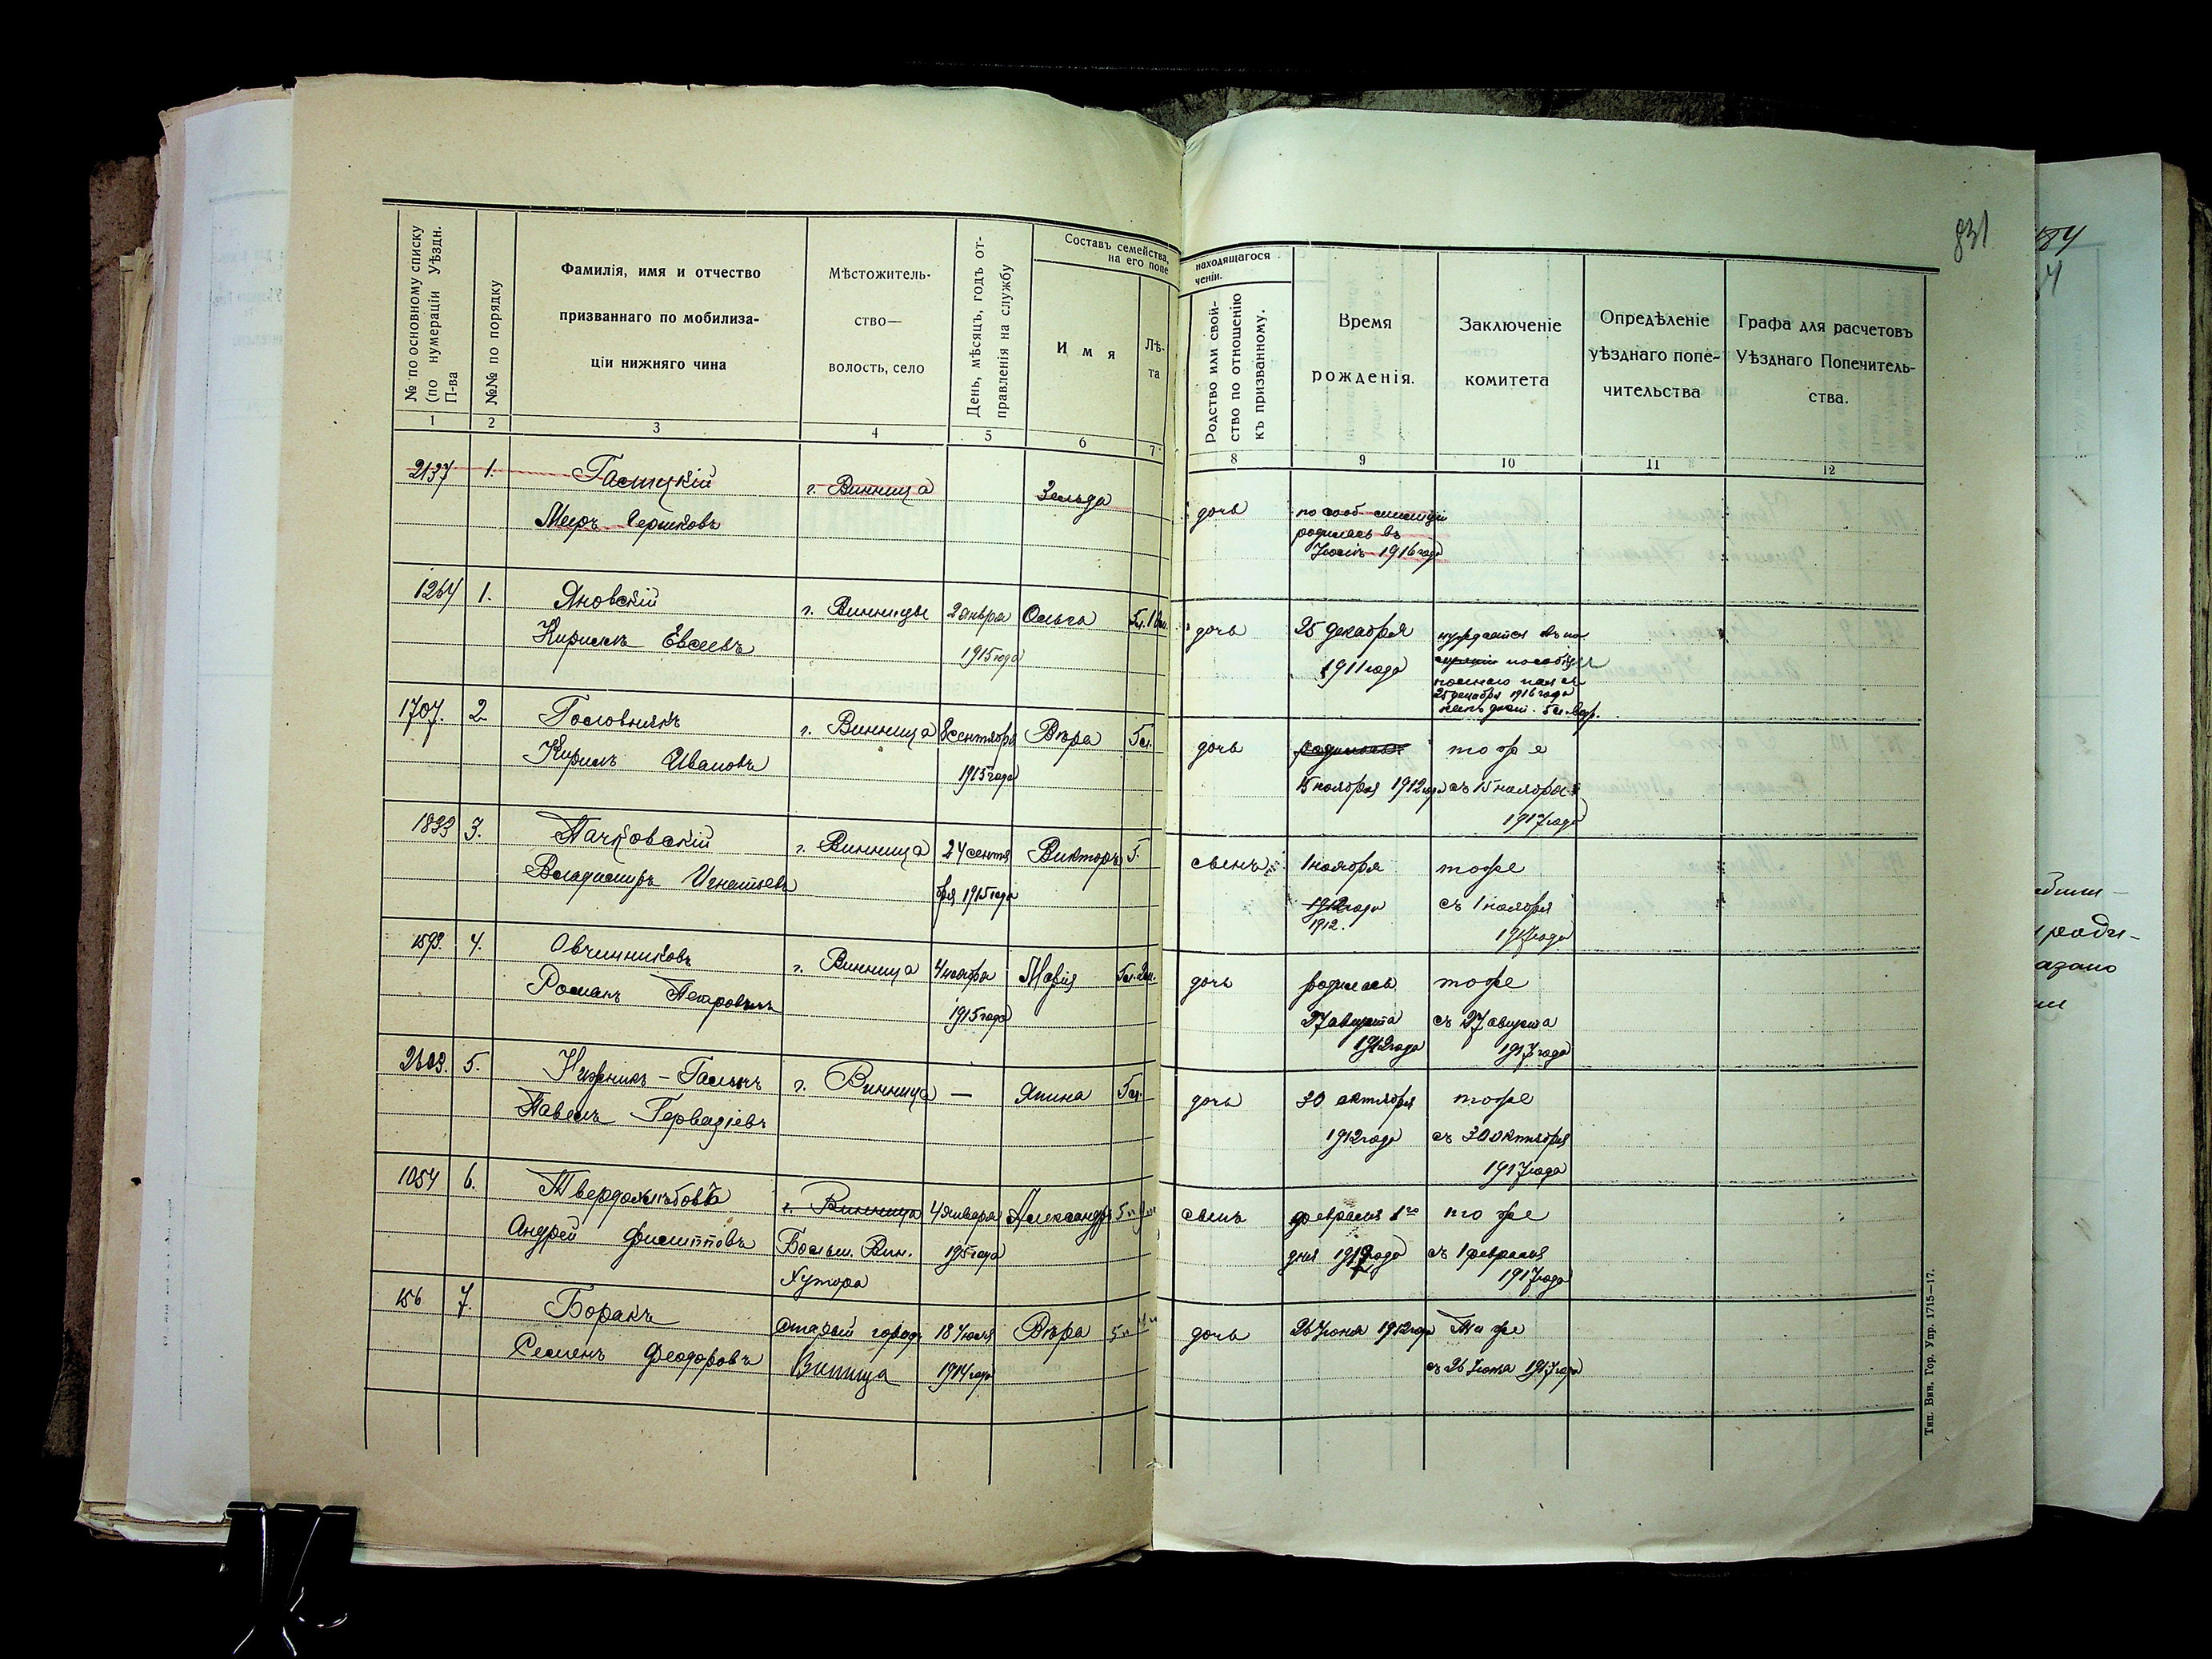 831
№ по основному списку (по нумераціи Уѣздн. П-ва
№№ по порядку
Фамилія, имя и отчество
призваннаго по мобилиза-
ціи нижняго чина
Мѣстожитель-
ство—
волость, село
День, мѣсяцъ, годъ от-
правленія на службу
Составъ семейства,
на его попе
находящагося
ченіи.
И м я
Лѣ-
та
Родство или свой-
ство по отношенію
къ призванному.
Время
рожденія.
Заключеніе
комитета
Опредѣленіе
уѣзднаго попе-
чительства
Графа для расчетовъ
Уѣзднаго Попечитель-
ства.
1 2 3 4 5 6 7 8 9 10 11 12
2137 1. г. Винница Зельда дочь
Меръ Гершковъ родилась въ
1916 года
1264 1. Яновскій г. Винницы 2 января Ольга дочь 25 декабря нуждается
Кириллъ Евсеевъ 1915 года 1911 года пособіи
25 декабря 1916 года
1707. 2 Головнякъ г. Винница 8 сентября Вѣра 5 л. дочь тоже
Кириллъ Ивановъ 1915 года 15 ноября 1912 года съ 15 ноября
1917 года
1833 3. Пачковскій г. Винница 24 сентя Викторъ 5. сынъ 1 ноября тоже
Владимиръ Игнатьевъ бря 1915 года 1912 года съ 1 ноября
1912. 1917 года
1593. 4. Овчинниковъ г. Винница 4 ноября Марія дочь родилась тоже
Романъ Петровичъ 1915 года 27 августа съ 27 августа
1912 года 1917 года
5. г. Винница — Янина 5 л. дочь 30 октября тоже
Павелъ 1912 года съ 30 октября
1917 года
1054 6. Твердохлѣбовъ г. Винница 4 января Александръ сынъ февраля 1го тоже
Андрей Филипповъ Больш. Вин. 1915 года дня 1912 года съ 1 февраля
Хутора 1917 года
156 7. Боракъ Старый городъ 18 Іюля Вѣра дочь 26 Іюня 1912 года Тоже
Семенъ Феодоровъ Винница 1914 года съ 26 Іюня 1917 года
Тип. Вин. Гор. Упр. 1715—17.